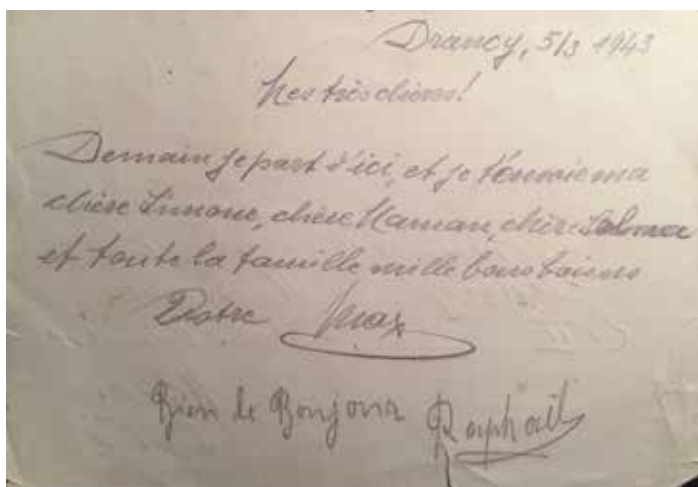 Drancy, 5/3 1943
Mes très chères!
Demain je part d'ici, et je t'envoie ma
chère Simone, chère Maman, chère
et toute la famille mille bons baisers
Votre Max
Bien le Bonjour Raphaël